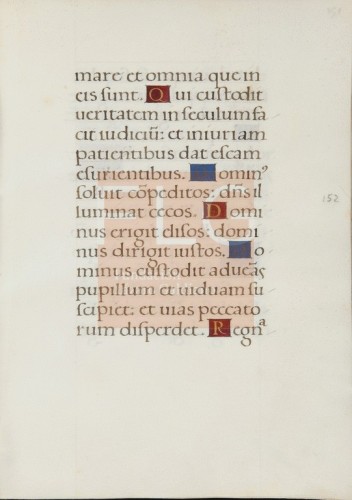 mare et omnia que in
eis sunt. Qui custodit
ueritatem in seculum fa
cit iudiciū: et iniuriam
patientibus dat escam
esurientibus. Dominꝰ
soluit cōpeditos: dn̄s il
luminat cecos. Domi
nus erigit elisos: domi
nus dirigit iustos. Do
minus custodit aduēas
pupillum et uiduam su
scipiet: et uias peccato
rum disperdet. Regnᵃ
152